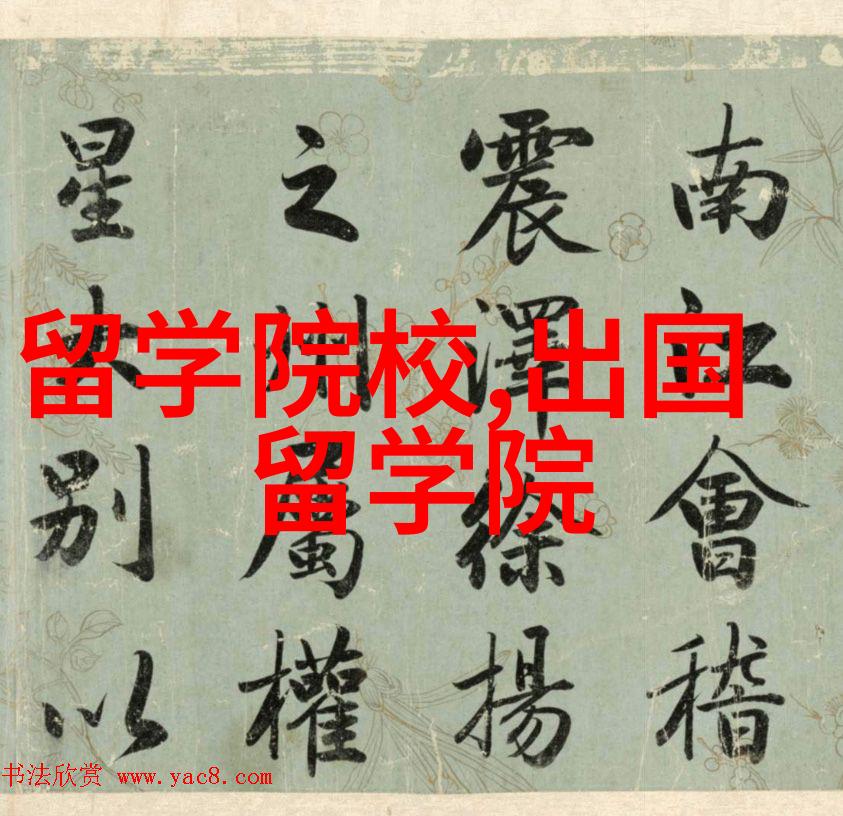 留学院校,出国
留学院
南江會稽
震澤徐揚
之州屬權
星大别以
书法欣赏 www.yac8.com